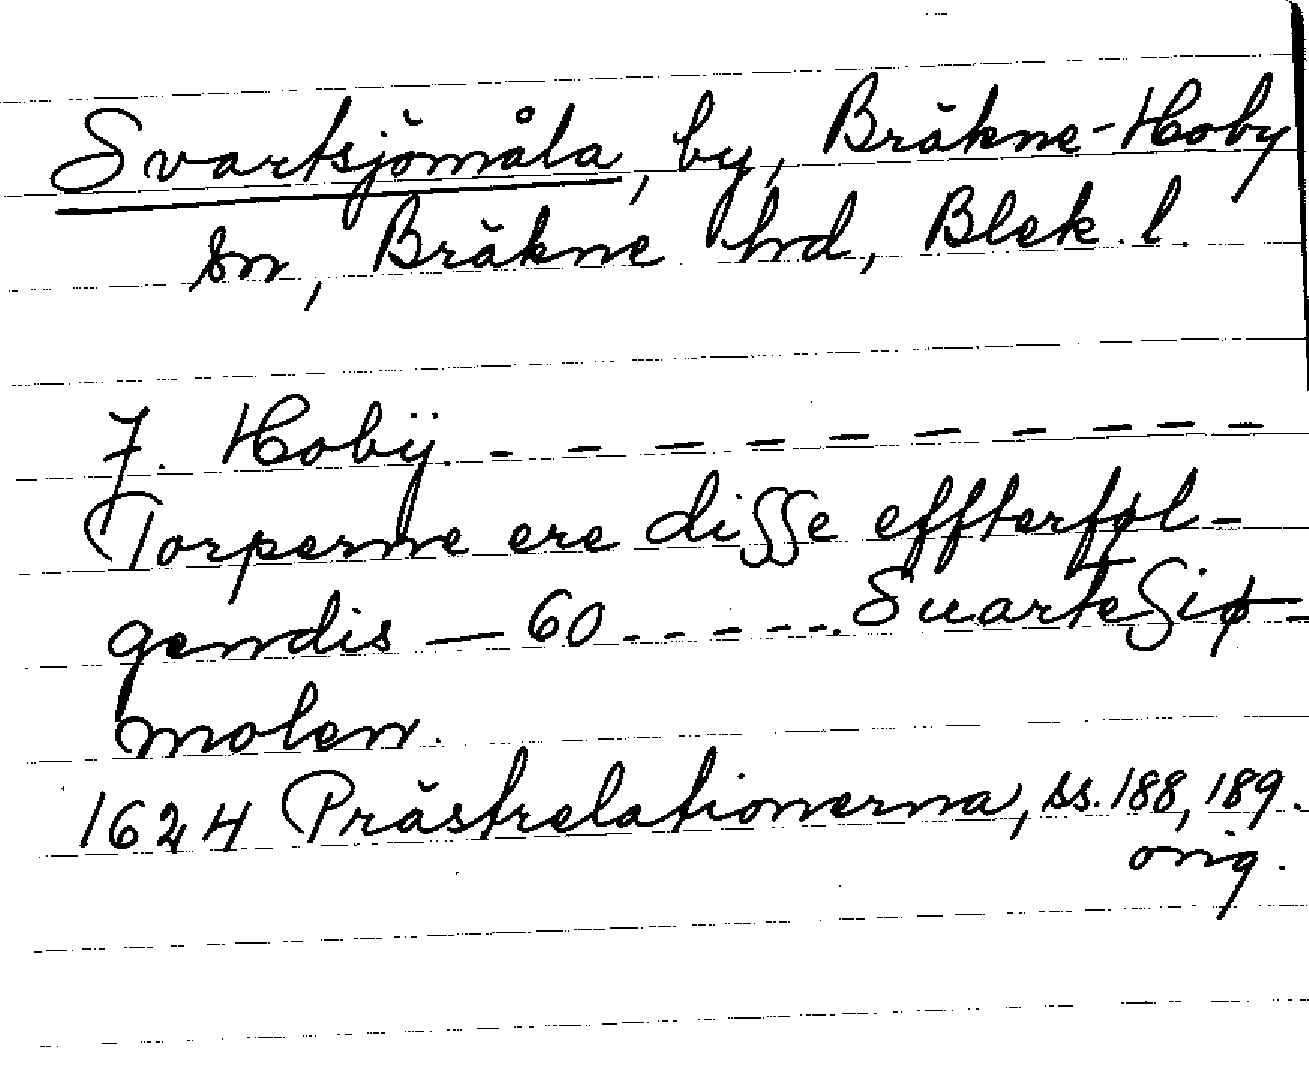 Svartsjömåla, by, Bräkne-Hoby
sn, Bräkne hd, Blek. l.
7. Hobÿ. - - - - - - - - - -
Torperne ere disse effterføl-
gendis — 60 - - - - - . SuarteSiø-
molen.
1624 Prästrelationerna, ss. 188, 189.
orig.